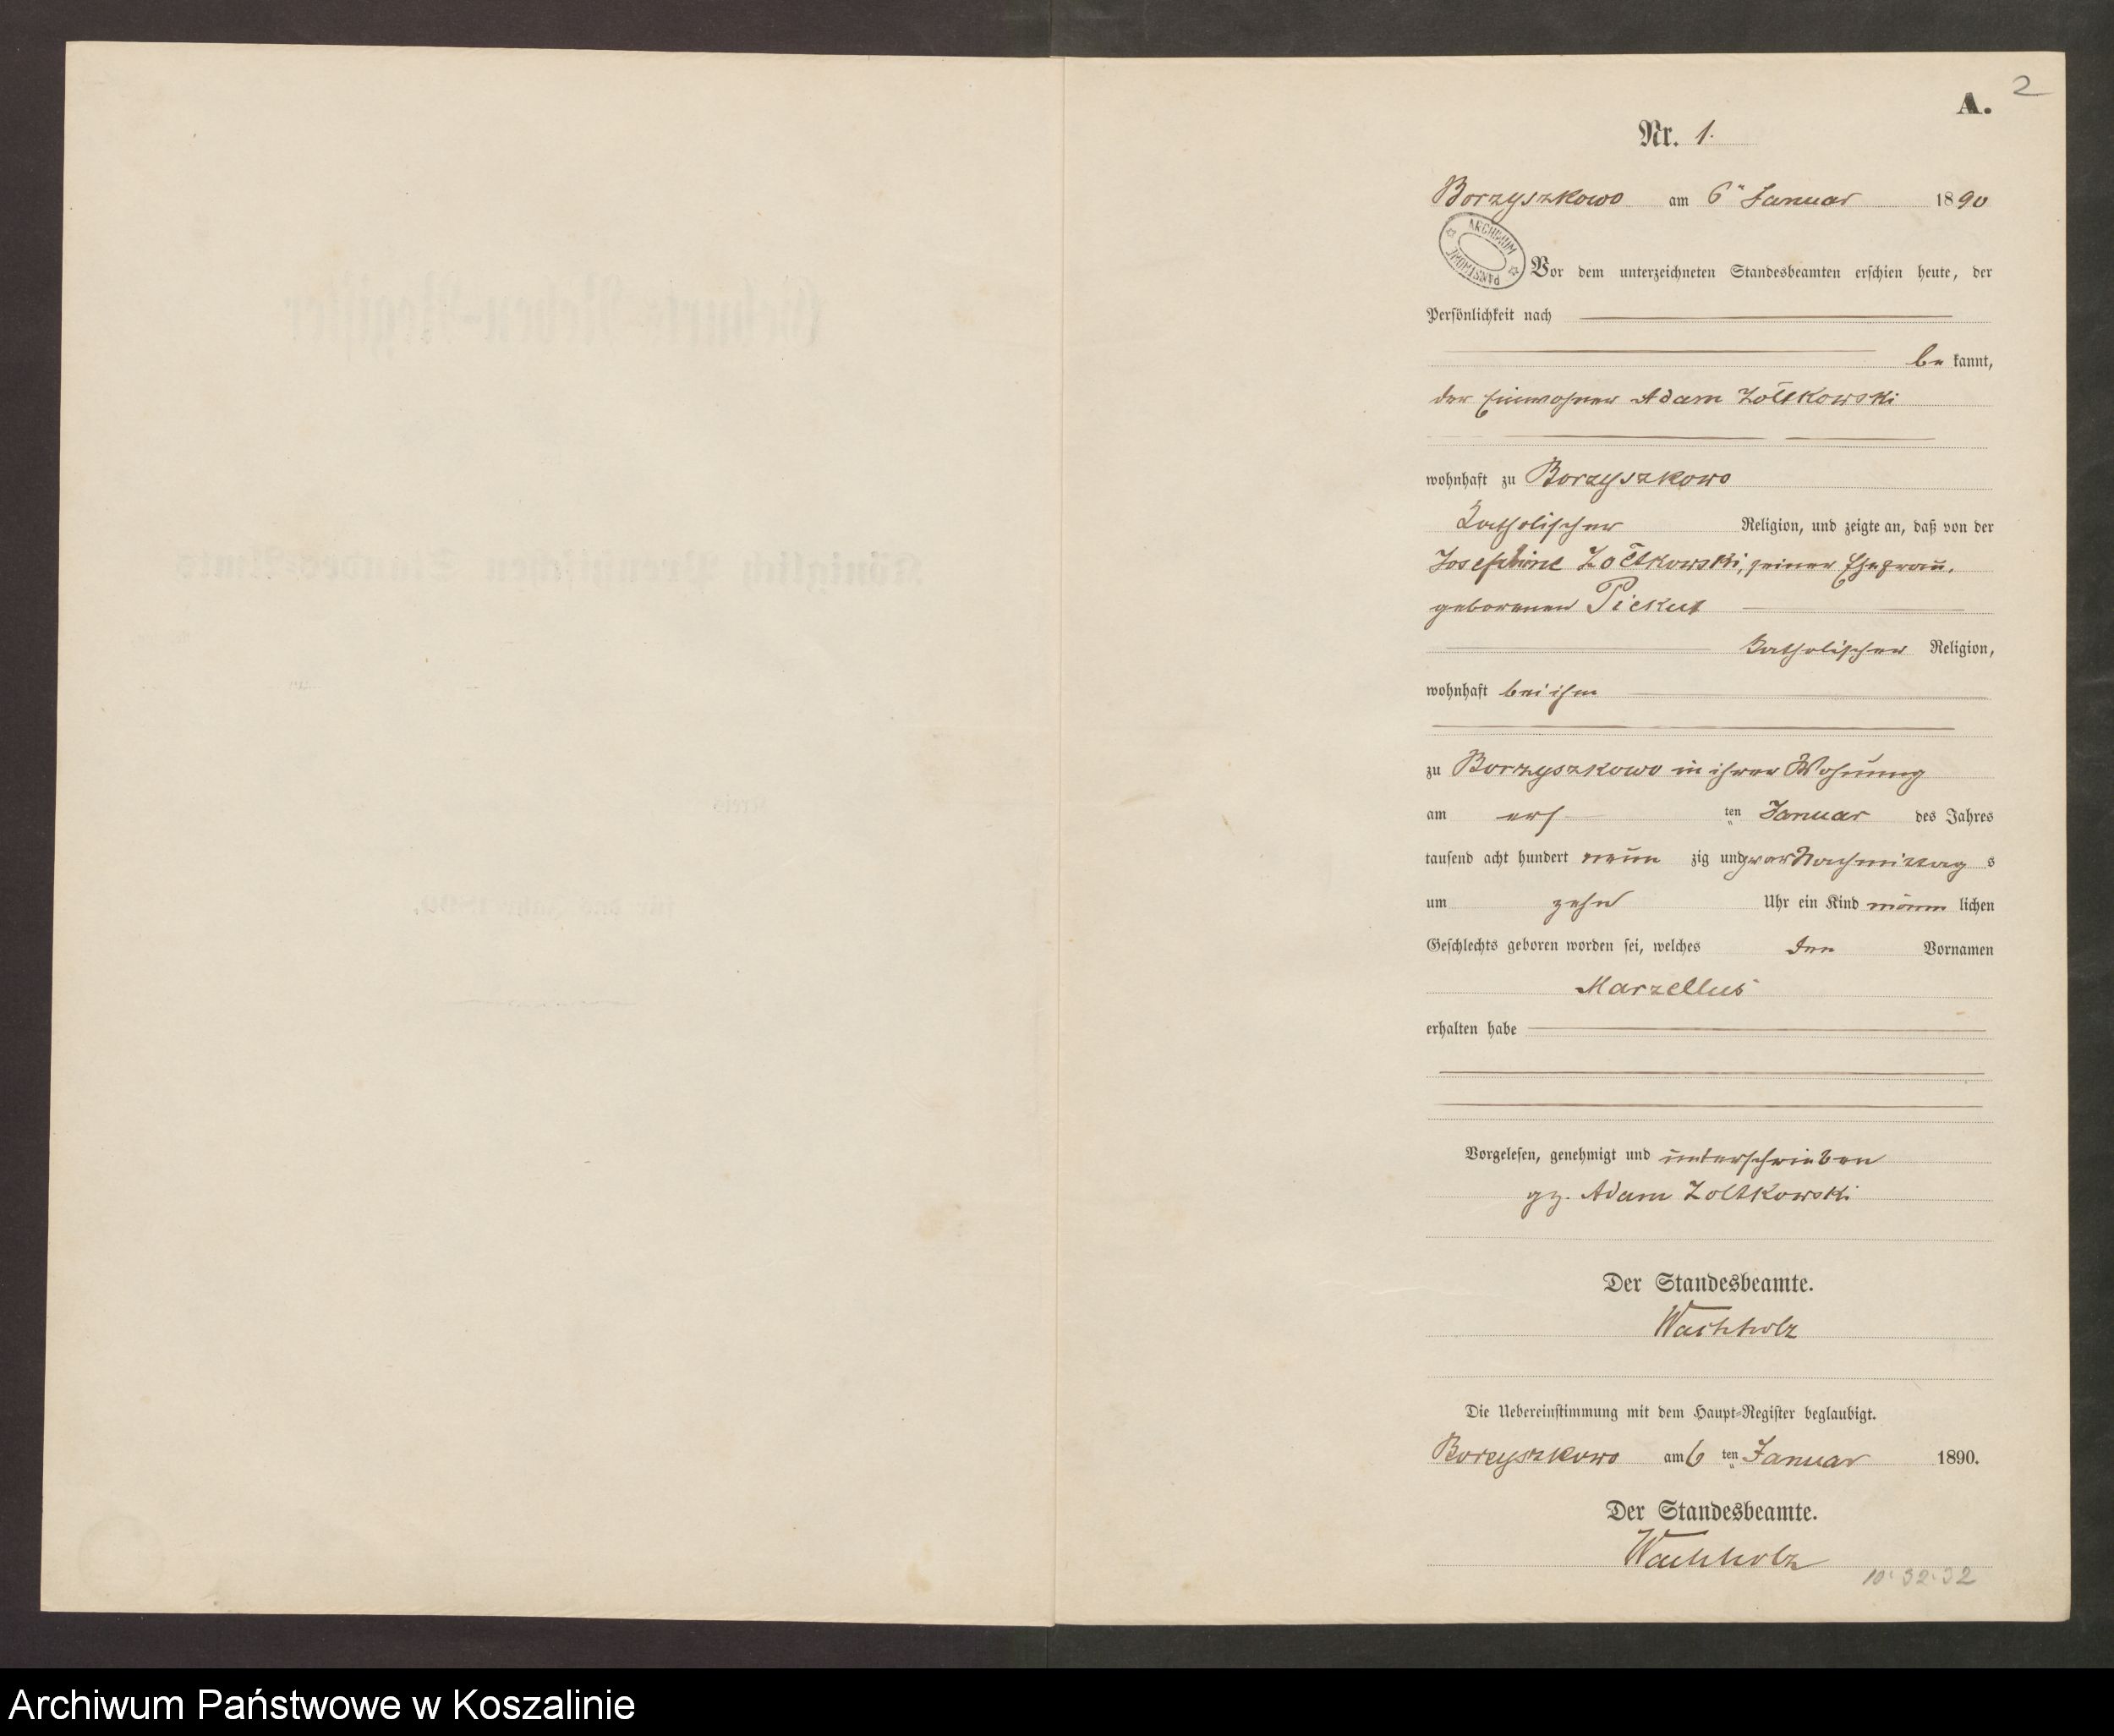 A. 2
Nr. 1.
Borzyszkowo am 6ten Januar 1890
ARCHIWUM PAŃSTWOWE
Vor dem unterzeichneten Standesbeamten erschien heute, der
Persönlichkeit nach
be kannt,
der Einwohner Adam Żółtkowski
wohnhaft zu Borzyszkowo
Katholischer Religion, und zeigte an, daß von der
Josephine Żołtkowski, seiner Ehefrau,
geborenen Piekut
Katholischer Religion,
wohnhaft bei ihm
zu Borzyszkowo in ihrer Wohnung
am ers ten Januar des Jahres
tausend acht hundert neun zig und zwar Nachmittag s
um zehn Uhr ein Kind männ lichen
Geschlechts geboren worden sei, welches den Vornamen
Marzellus
erhalten habe
Vorgelesen, genehmigt und unterschrieben
gz. Adam Zoltkowski
Der Standesbeamte.
Wachholz
Die Uebereinstimmung mit dem Haupt-Register beglaubigt.
Borzyszkowo am 6 ten Januar 1890.
Der Standesbeamte.
Wachholz
10·32·32
Archiwum Państwowe w Koszalinie